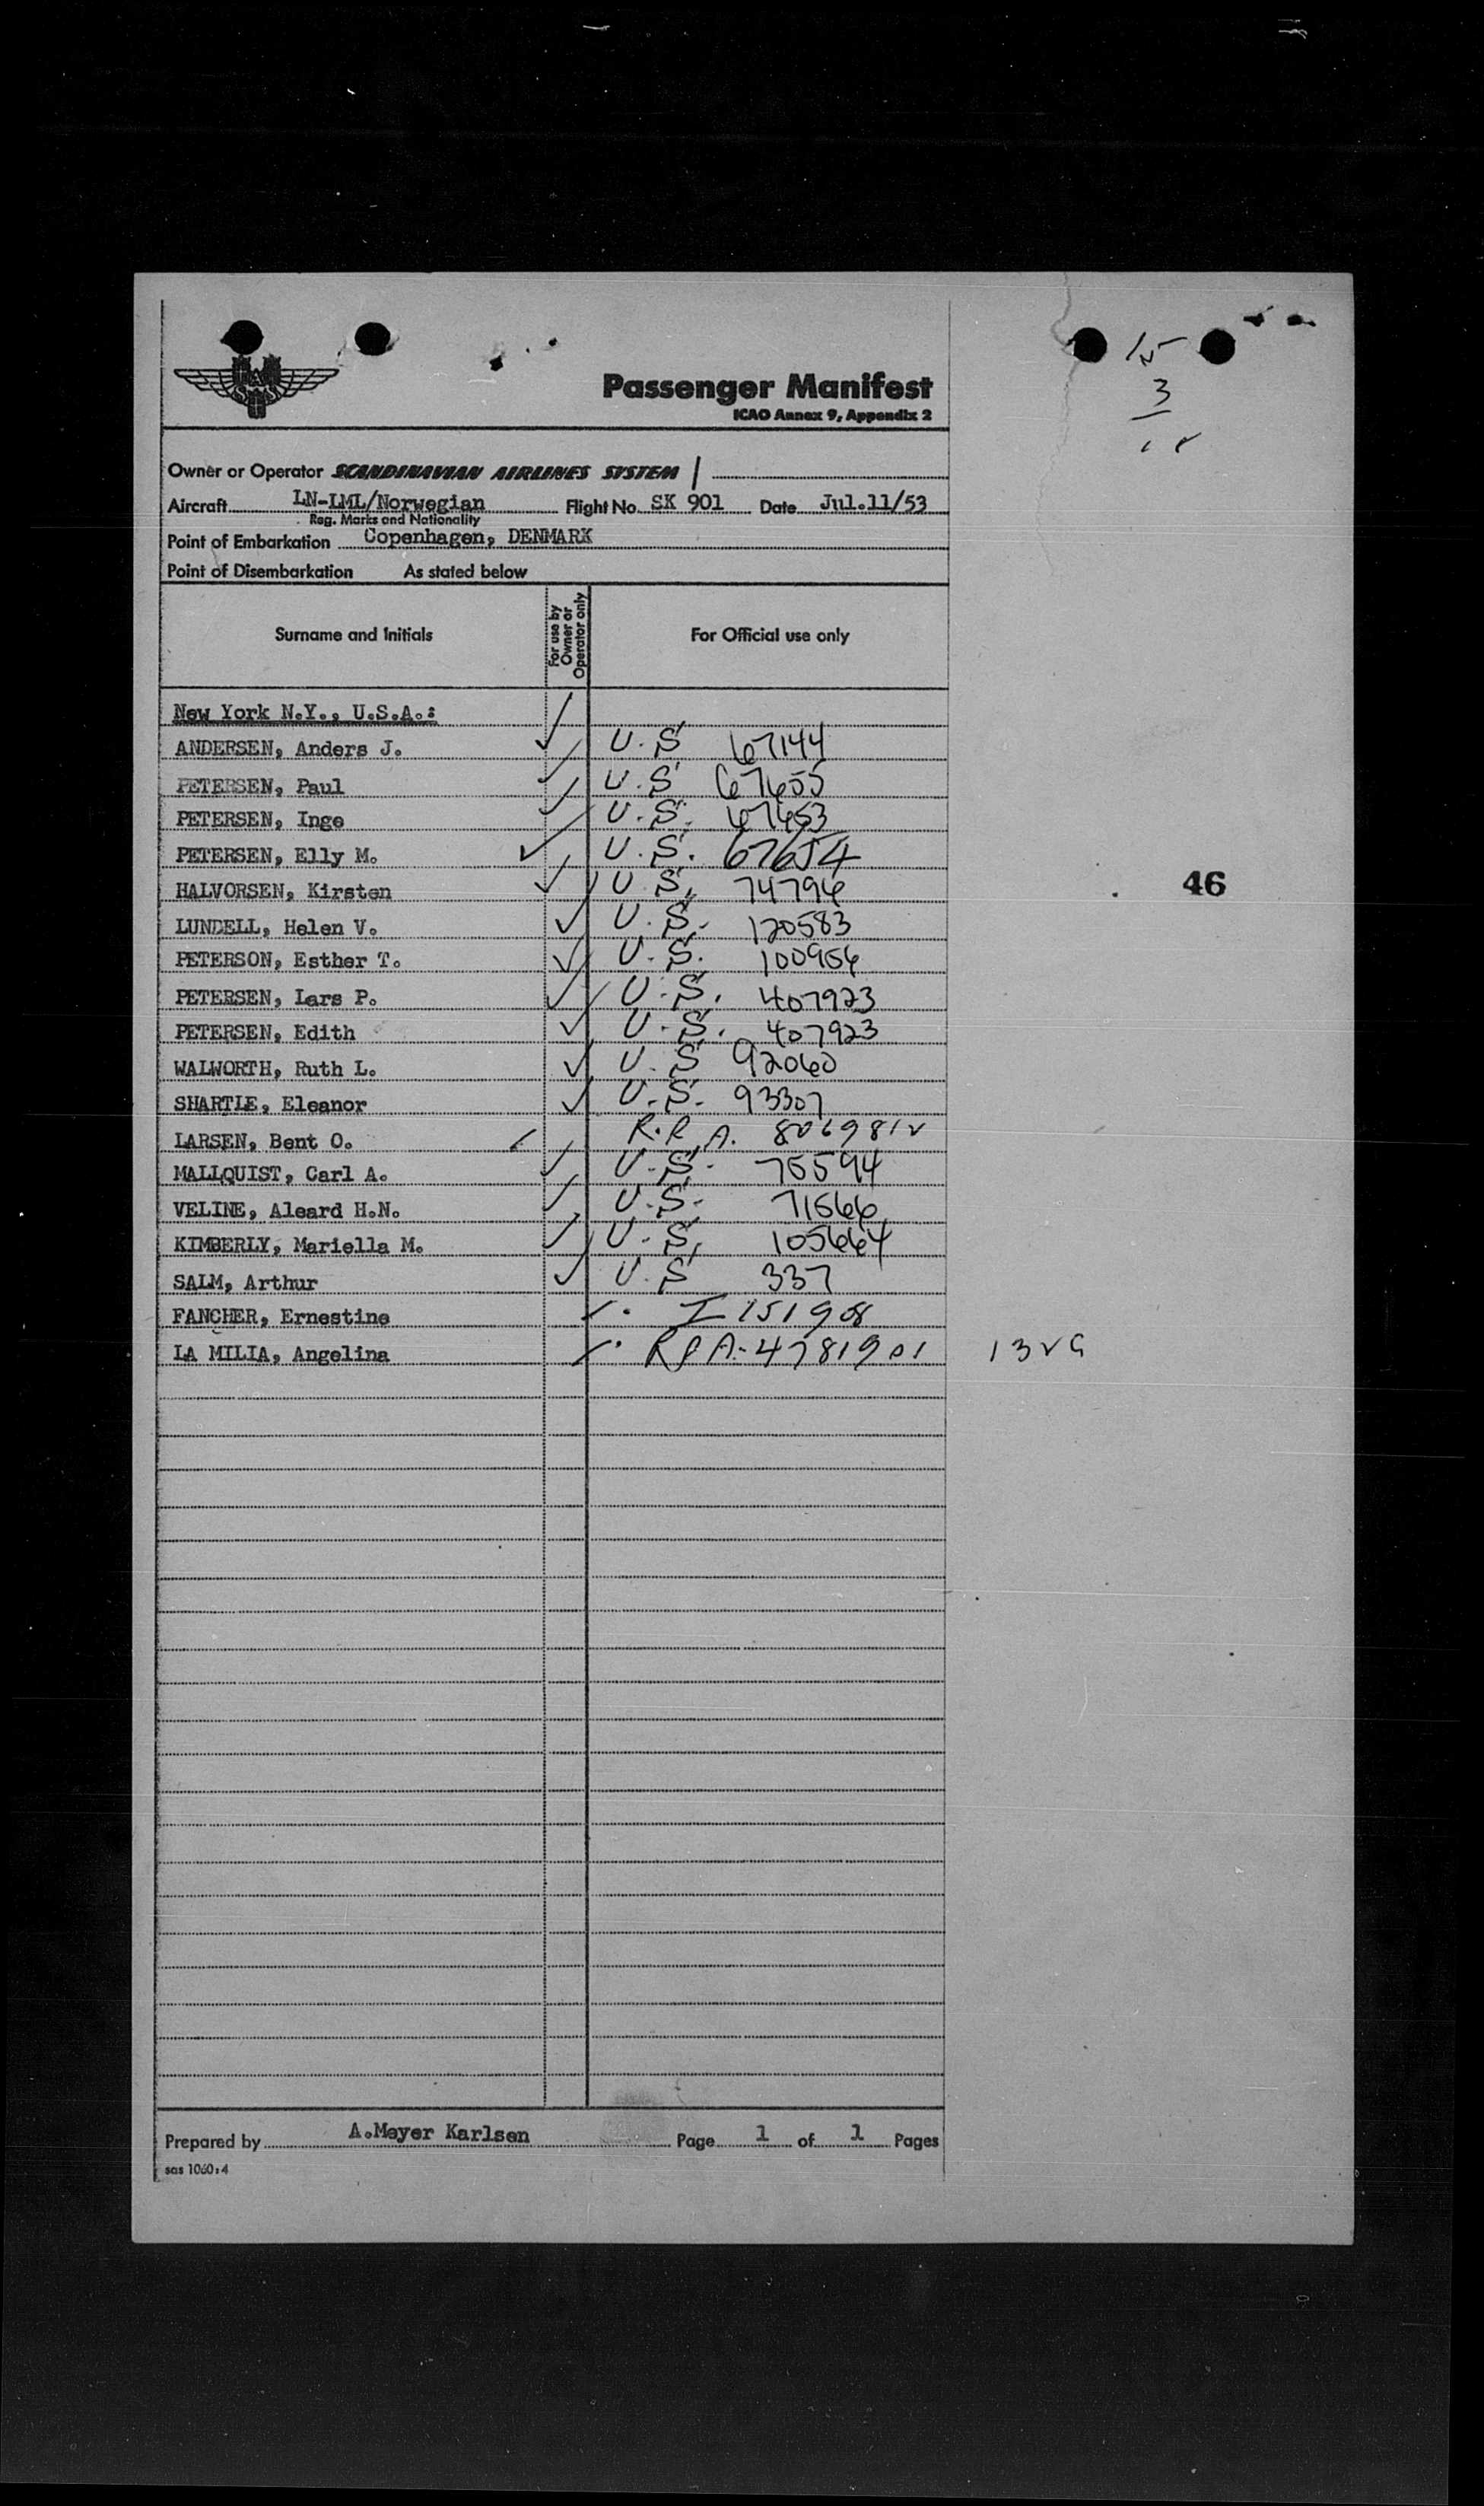 15
3
Passenger Manifest
ICAO Annex 9, Appendix 2
Owner or Operator SCANDINAVIAN AIRLINES SYSTEM
Aircraft LN-LML/Norwegian Flight No. SK 901 Date Jul.11/53
Reg. Marks and Nationality
Point of Embarkation Copenhagen, DENMARK
Point of Disembarkation As stated below
Surname and Initials For use by Owner or Operator only For Official use only
New York N.Y., U.S.A.:
ANDERSEN, Anders J. U.S 67144
PETERSEN, Paul U.S 67655
PETERSEN, Inge U.S. 67653
PETERSEN, Elly M. U.S. 67654
HALVORSEN, Kirsten U.S. 74796
46
LUNDELL, Helen V. U.S. 120583
PETERSON, Esther T. U.S. 100956
PETERSEN, Lars P. U.S. 407923
PETERSEN, Edith U.S. 407923
WALWORTH, Ruth L. U.S 92060
SHARTLE, Eleanor U.S. 93307
LARSEN, Bent O. R.R.A.
MALLQUIST, Carl A. U.S. 75594
VELINE, Aleard H.N. U.S. 71566
KIMBERLY, Mariella M. U.S. 105664
SALM, Arthur U.S 337
FANCHER, Ernestine I 151908
LA MILIA, Angelina 4781901
Prepared by A.Meyer Karlsen Page 1 of 1 Pages
sas 1060:4